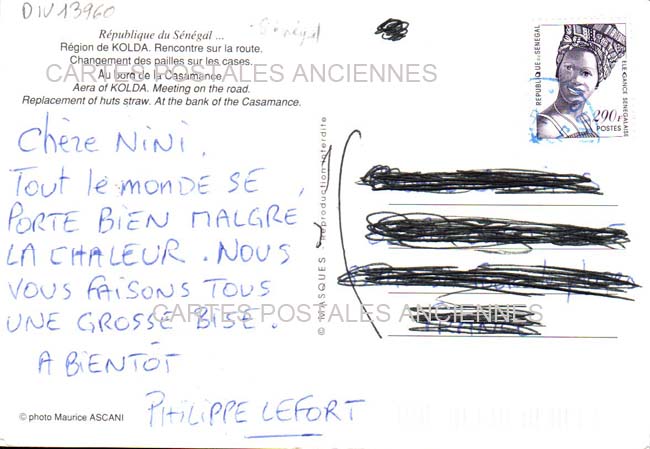 DIV13960
Sénégal
République du Sénégal ...
Région de KOLDA. Rencontre sur la route.
Changement des pailles sur les cases.
Au bord de la Casamance.
Aera of KOLDA. Meeting on the road.
Replacement of huts straw. At the bank of the Casamance.
CARTES POSTALES ANCIENNES
REPUBLIQUE DU SENEGAL
ELEGANCE SENEGALAISE
290F
POSTES
Chère NINI,
TOUT le MONDE SE
PORTE BIEN MALGRE
LA CHALEUR. NOUS
VOUS FAISONS TOUS
UNE GROSSE BISE.
A BIENTOT
PHILIPPE LEFORT
CARTES POSTALES ANCIENNES
© MASQUES - Reproduction interdite
FRANCE
© photo Maurice ASCANI